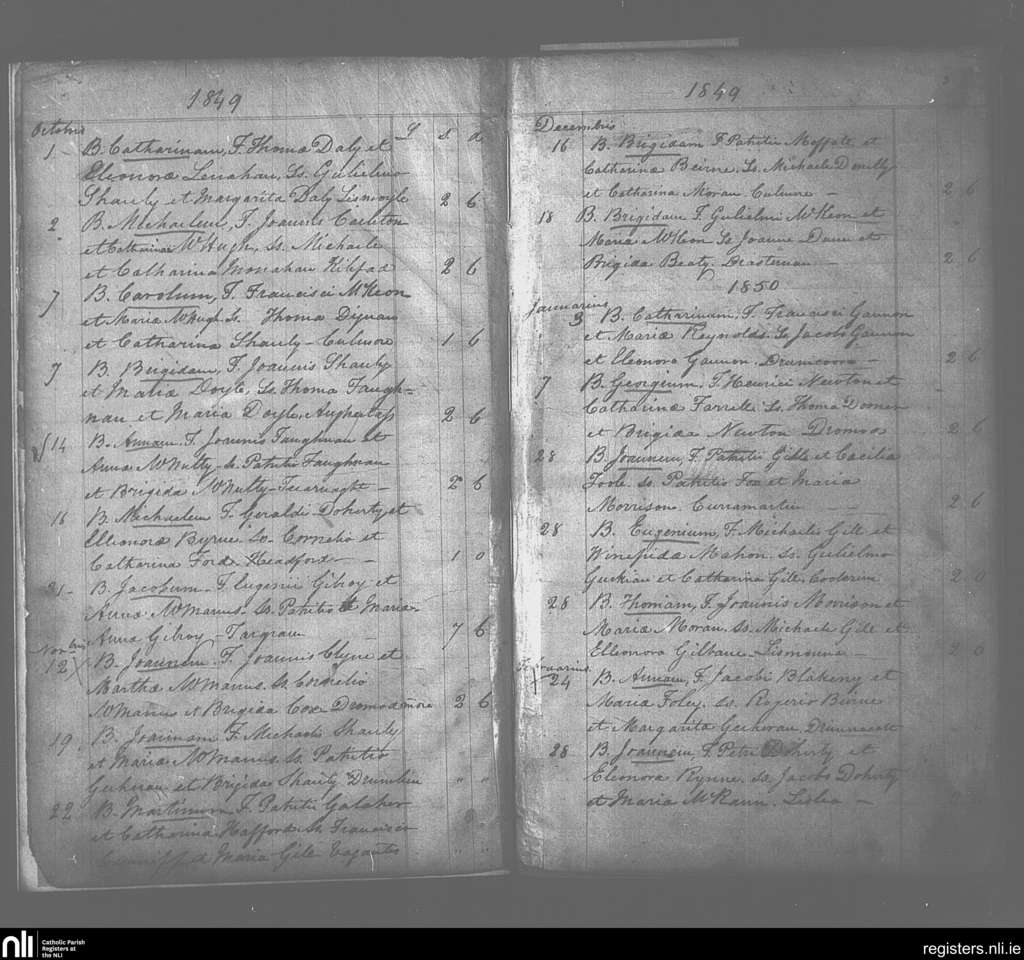 1849
Octobris
£ s. d
1 B. Catharinam, F. Thomæ Daly et
Eleonoræ Lenahan, Ss. Gulielmo
Shanly et Margarita Daly Lismoyle 2 6
2 B. Michaelem, F. Joannis Carleton
et Catharinæ McHugh, Ss. Michaele
et Catharina Monahan Kilfad 2 6
7 B. Carolum, F. Francisci McKeon
et Mariæ McHugh Ss. Thoma Dignan
et Catharina Shanly - Culmore 1 6
7 B. Brigidam, F. Joannis Shanly
et Maria Doyle, Ss. Thoma Faugh-
nan et Maria Doyle, Aughaglass 2 6
14 B. Annam F. Joannis Faughnan et
Anna McNulty - Ss Patritio Faughnan
et Brigida McNulty - 2 6
B. Michaelem F. Geraldi Doherty et
Elleonoræ Byrne. Ss. Cornelio et
Catherina Ford. Headford - 1 0
21 - B. Jacobum - F. Eugenii Gilroy et
Anna McManus - Ss. Patritio et Maria
Anna Gilroy - 7 6
12 B. Joannem. F. Joannis Clyne et
Marthæ McManus. Ss. Cornelio
McManus et Brigida Cox 2 6
19. B. Joannem F. Michaeli Shanly
et Maria McManus. Ss. Patritio
et Brigida Shanly " "
22 B. Martinum F. Patritii Galaher
et Catharina Hafford Ss Francisco
Maria Gill Vagantes
1849
Decembris
16 B. Brigidam F Patritii Moffatt, et
Catharina Beirne. Ss. Michaele Donilly
et Catharina Moran Culmore - 2 6
18 B. Brigidam F. Gulielmi McKeon et
Maria McKeon Ss Joanne Dunn et
Brigida Beaty. 2 6
1850
Januarius
3 B. Catharinam, F. Francisci Gannon
et Mariæ Reynolds. Ss Jacobo Gannon
et Eleonora Gannon. Drumcoora - 2 6
7 B. Georgium, F. Henrici Newton et
Catharinæ Farrell Ss. Thoma
et Brigida Newton Dromoos 2 6
28 B. Joannem, F. Patritii Gill et Cæcilia
Toole. Ss. Patritio Fox et Maria
Morrison. Curramartin 2 6
28 B. Eugenium, F. Michaelis Gill et
Winefrida Mahon. Ss. Gulielmo
Guckian et Catharina Gill. 2 0
28 B. Thomam, F. Joannis Morrison et
Mariæ Moran. Ss. Michaele Gill et
Elleonora Gilhane - 2 0
24 B. Annam, F. Jacobi Blakeny et
Maria Foley. Ss. Rogerio Beirne
et Margarita
28 B. Joannem, F. Petri Doherty et
Eleonora Rynne. Ss. Jacobo Doherty
et Maria McKann.
nli
Catholic Parish
Registers at
the NLI
registers.nli.ie